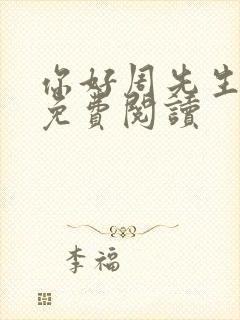 你好周先生
免費閱讀
李福